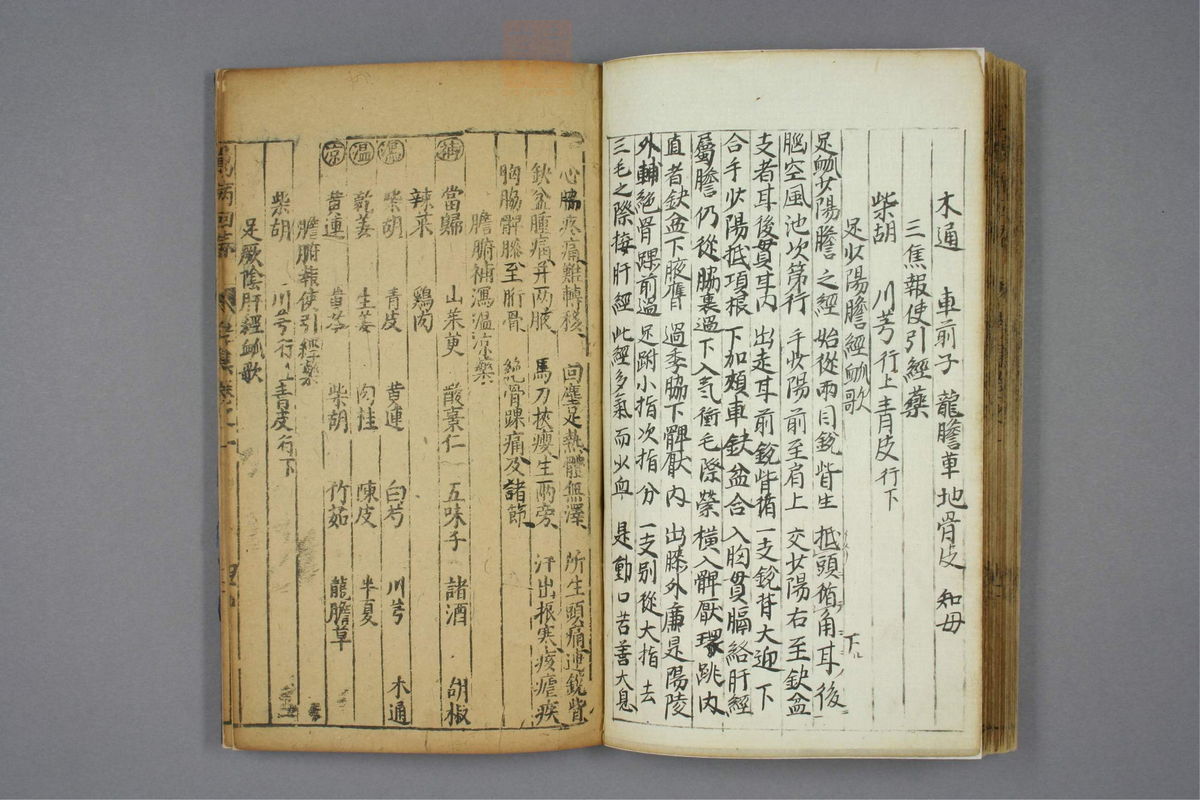 木通 車前子 龍膽草 地骨皮 知母
三焦報使引經藥
柴胡 川芎行上青皮行下
足少陽膽經血歌
足少陽膽之經 始從兩目銳眥生 抵頭循角耳後
腦空風池次第行 手少陽前至肩上 交少陽右至缺盆
支者耳後貫耳內 出走耳前銳眥循 一支銳眥大迎下
合手少陽抵項根 下加頰車缺盆合 入胸貫膈絡肝經
屬膽仍從脇裏過 下入氣衝毛際縈 橫入髀厭環跳內
直者缺盆下腋膺 過季脇下髀厭內 出膝外廉是陽陵
外輔絕骨踝前過 足跗小指次指分 一支別從大指去
三毛之際接肝經 此經多氣而少血 是動口苦善大息
心脇疼痛難轉移 面塵足熱體無澤 所生頭痛連銳眥
缺盆腫痛并兩腋 馬刀挾癭生兩旁 汗出振寒痎瘧疾
胸脇髀膝至胻骨 絕骨踝痛及諸節
膽腑補瀉溫涼藥
補 當歸 山茱萸 酸棗仁 五味子 諸酒 胡椒
辣菜 鷄肉
瀉 柴胡 青皮 黃連 白芍 川芎 木通
溫 乾姜 生姜 肉桂 陳皮 半夏
涼 黃連 黃芩 柴胡 竹茹 龍膽草
膽腑報使引經藥
柴胡 川芎行上青皮行下
足厥陰肝經血歌
萬病回春